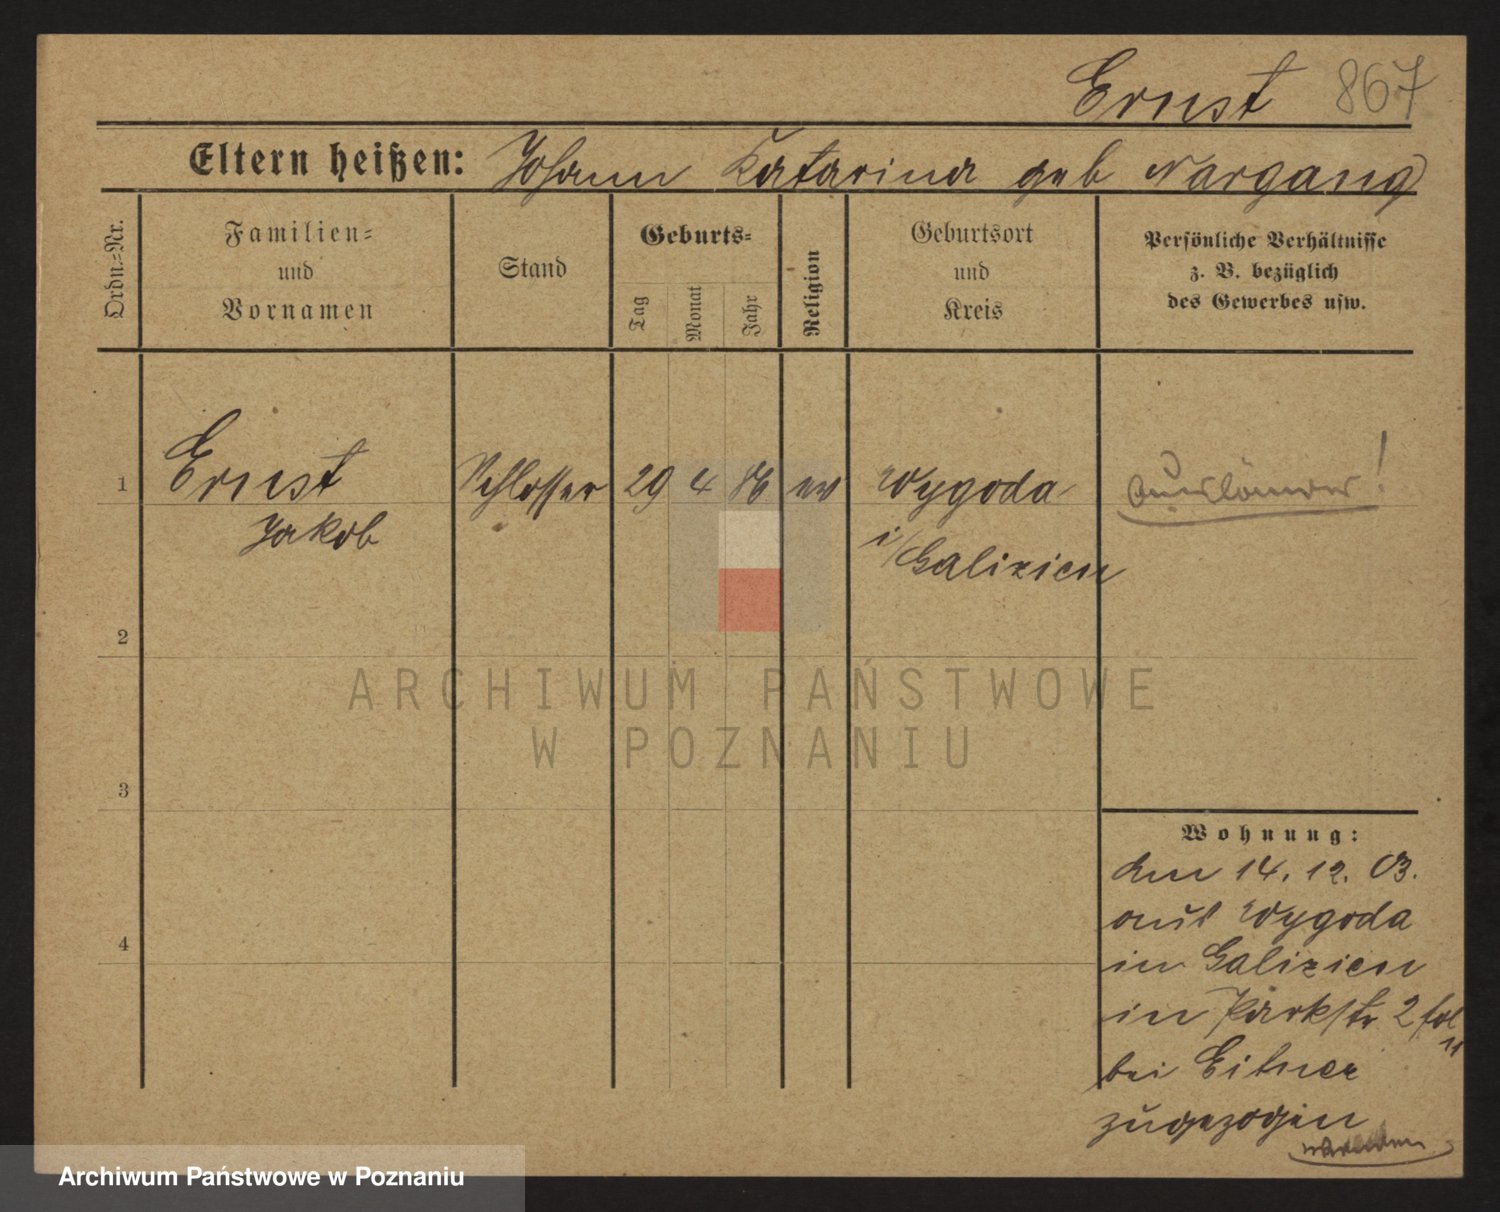 Ernst 867
Eltern heißen: Johann Katarina geb Nargang
Ordn.-Nr.
Familien-
und
Vornamen
Stand
Geburts-
Tag
Monat
Jahr
Religion
Geburtsort
und
Kreis
Persönliche Verhältnisse
z. B. bezüglich
des Gewerbes usw.
1 Ernst Schlosser 29 4 86 ev Wygoda Ausländer!
Jakob i/Galizien
2
ARCHIWUM PAŃSTWOWE
W POZNANIU
3
Wohnung:
4
den 14. 12. 03.
aus Wygoda
in Galizien
in Parkstr 2
bei Eitner
zugezogen
Archiwum Państwowe w Poznaniu